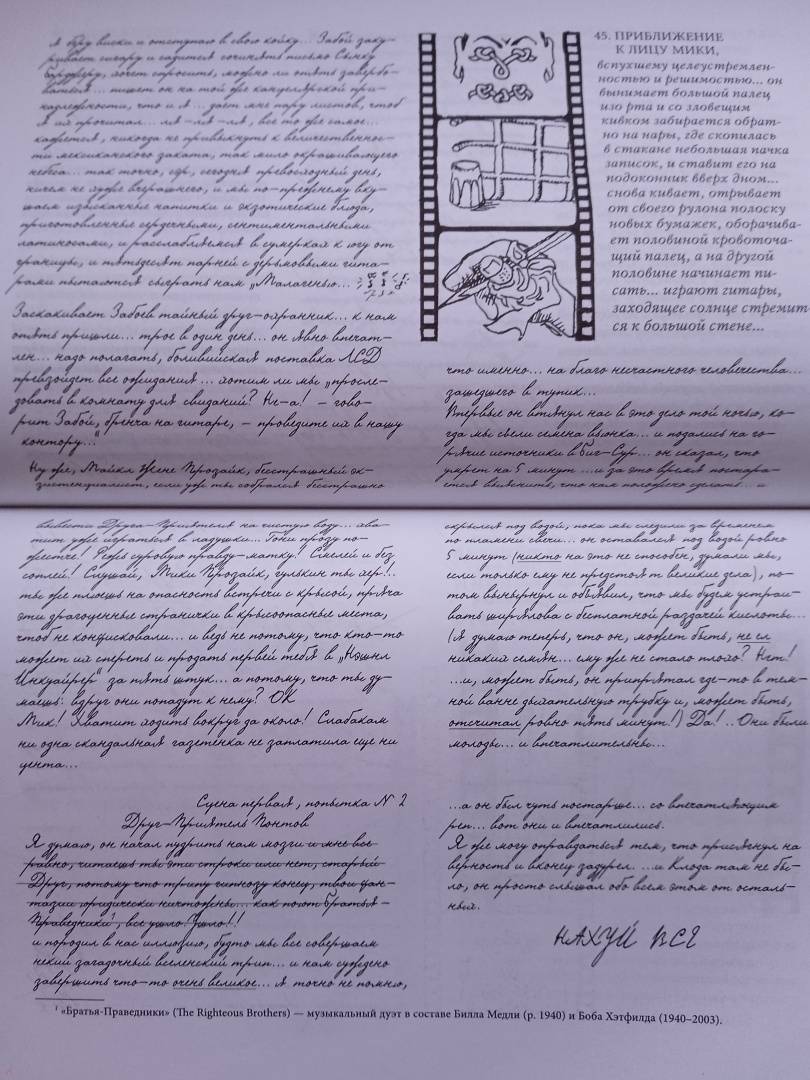 Я беру виски и отступаю в свою койку... Забой заку-
ривает сигару и садится сочинять письмо Сынку
хочет спросить, можно ли опять заверб-
оваться... пишет он на той же канцелярской при-
надлежности, что и я... дает мне пару листов, чтоб
я их прочитал... ля-ля-ля, всё то же самое...
кажется, никогда не привыкнуть к величественнос-
ти мексиканского заката, так мило окрашивающего
небеса... так точно, сэр, сегодня превосходный день,
ничем не хуже вчерашнего, и мы по-прежнему вку-
шаем изысканные напитки и экзотические блюда,
приготовленные сердечными, сентиментальными
латиносами, и расслабляемся в сумерках к югу от
границы, и пятьдесят парней с дерьмовыми гита-
рами пытаются сыграть нам „Малагенью...
Заскакивает Забоев тайный друг-охранник... к нам
опять пришли... трое в один день... он явно впечат-
лен... надо полагать, боливийская поставка ЛСД
превзойдет все ожидания... хотим ли мы „просле-
довать в комнату для свиданий? Не-а! – гово-
рит Забой, бренча на гитаре, – проведите их в нашу
контору..."
Ну же, Майкл Жене Прозайк, бесстрашный эк-
зистенциалист, если уж ты собрался бесстрашно
вывести Друга-Приятеля на чистую воду... хва-
тит уже играться в ладушки... Гони прозу по-
жестче! Режь суровую правду-матку! Смелей и без
соплей! Слушай, Мики Прозайк, гулькин ты хер!..
ты же плюешь на опасность встречи с крысой, пряча
эти драгоценные странички в крысоопасные места,
чтоб не конфисковали... и ведь не потому, что кто-то
может их спереть и продать первей тебя в „Нэшнл
Инкуайрер" за пять штук... а потому, что ты ду-
маешь: вдруг они попадут к нему? ОК
Мик! Хватит ходить вокруг да около! Слабакам
ни одна скандальная газетенка не заплатила еще ни
цента...
Сцена первая, попытка № 2
Друг-Приятель Понтов
Я думаю, он начал пудрить нам мозги и мне все
равно, читаешь ты эти строки или нет, старый
Друг, потому что трипу гипнозу конец, твои фан-
тазии юридически ничтожны... как поют Братья-
Праведники¹, все ушло. Ушло!!
и породил в нас иллюзию, будто мы все совершаем
некий загадочный вселенский трип... и нам суждено
завершить что-то очень великое... Я точно не помню,
45. ПРИБЛИЖЕНИЕ
К ЛИЦУ МИКИ,
вспухшему целеустремлен-
ностью и решимостью... он
вынимает большой палец
изо рта и со зловещим
кивком забирается обрат-
но на нары, где скопилась
в стакане небольшая пачка
записок, и ставит его на
подоконник вверх дном...
снова кивает, отрывает
от своего рулона полоску
новых бумажек, оборачива-
ет половиной кровоточа-
щий палец, а на другой
половине начинает пи-
сать... играют гитары,
заходящее солнце стремит-
ся к большой стене...
что именно... на благо несчастного человечества...
зашедшего в тупик...
Впервые он втянул нас в это дело той ночью, ко-
гда мы съели семена вьюнка... и подались на го-
рячие источники в Биг-Сур... он сказал, что
умрет на 5 минут ...и за это время постара-
ется выяснить, что нам полезного сделать... и
скрылся под водой, пока мы следили за временем
по пламени свечи... он оставался под водой ровно
5 минут (никто на это не способен, думали мы,
если только ему не предстоят великие дела), по-
том вынырнул и объявил, что мы будем устраи-
вать ширялова с бесплатной раздачей кислоты...
(Я думаю теперь, что он, может быть, не ел
никаких семян... ему же не стало плохо? Нет!
...и, может быть, он припрятал где-то в тем-
ной ванне дыхательную трубку и, может быть,
отсчитал ровно пять минут!) Да!.. Они были
молоды... и впечатлительны...
...а он был чуть постарше... со впечатляющим
реп... вот они и впечатлились.
Я же могу оправдаться тем, что присягнул на
верность и вконец задурел. ...и Клода там не бы-
ло, он просто слышал обо всем этом от осталь-
ных.
НАХУЙ ВСЁ
¹ «Братья-Праведники» (The Righteous Brothers) — музыкальный дуэт в составе Билла Медли (р. 1940) и Боба Хэтфилда (1940–2003).